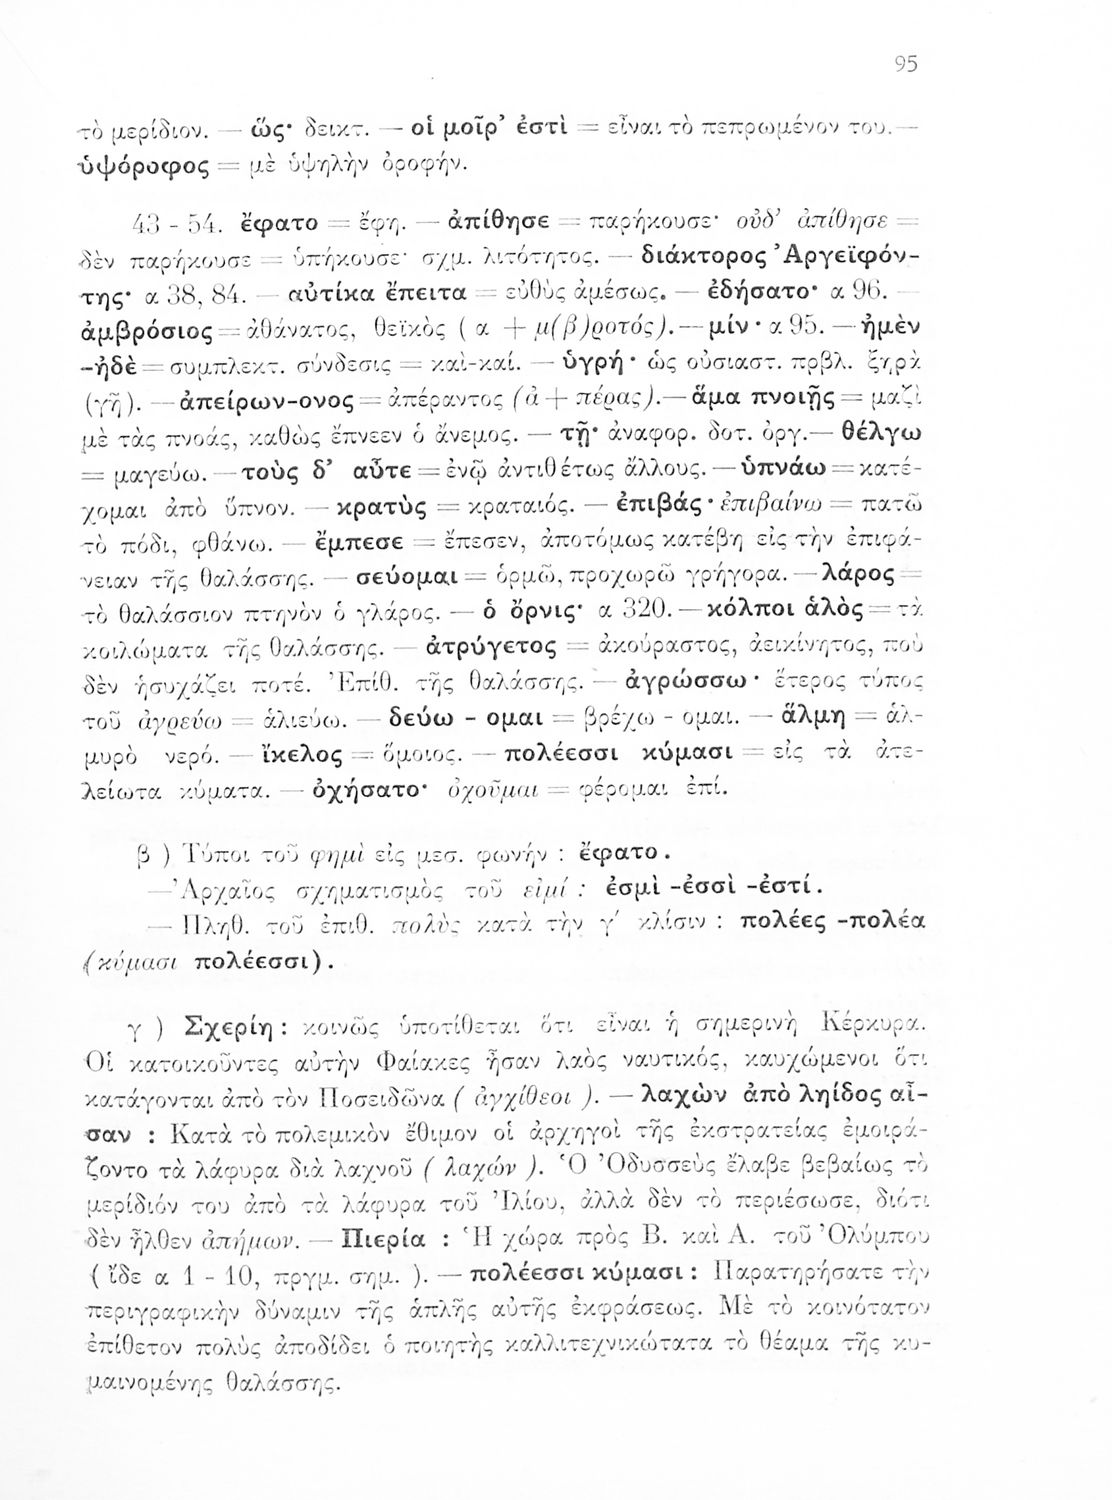 95
τὸ μερίδιον. — ὥς· δεικτ. — οἱ μοῖρ’ ἐστὶ = εἶναι τὸ πεπρωμένον του. —
ὑψόροφος = μὲ ὑψηλὴν ὀροφήν.
43 - 54. ἔφατο = ἔφη. — ἀπίθησε = παρήκουσε· οὐδ’ ἀπίθησε =
δὲν παρήκουσε = ὑπήκουσε· σχμ. λιτότητος. — διάκτορος Ἀργεϊφόν-
της· α 38, 84. — αὐτίκα ἔπειτα = εὐθὺς ἀμέσως. — ἐδήσατο· α 96. —
ἀμβρόσιος = ἀθάνατος, θεϊκὸς ( α + μ(β)ροτός). — μίν· α 95. — ἠμὲν
-ἠδὲ = συμπλεκτ. σύνδεσις = καὶ-καί. — ὑγρή· ὡς οὐσιαστ. πρβλ. ξηρὰ
(γῆ). — ἀπείρων-ονος = ἀπέραντος (ἀ + πέρας). — ἅμα πνοιῇς = μαζὶ
μὲ τὰς πνοάς, καθὼς ἔπνεεν ὁ ἄνεμος. — τῇ· ἀναφορ. δοτ. ὀργ. — θέλγω
= μαγεύω. — τοὺς δ’ αὖτε = ἐνῷ ἀντιθέτως ἄλλους. — ὑπνάω = κατέ-
χομαι ἀπὸ ὕπνον. — κρατὺς = κραταιός. — ἐπιβάς· ἐπιβαίνω = πατῶ
τὸ πόδι, φθάνω. — ἔμπεσε = ἔπεσεν, ἀποτόμως κατέβη εἰς τὴν ἐπιφά-
νειαν τῆς θαλάσσης. — σεύομαι = ὁρμῶ, προχωρῶ γρήγορα. — λάρος =
τὸ θαλάσσιον πτηνὸν ὁ γλάρος. — ὁ ὄρνις· α 320. — κόλποι ἁλὸς = τὰ
κοιλώματα τῆς θαλάσσης. — ἀτρύγετος = ἀκούραστος, ἀεικίνητος, ποὺ
δὲν ἡσυχάζει ποτέ. Ἐπίθ. τῆς θαλάσσης. — ἀγρώσσω· ἕτερος τύπος
τοῦ ἀγρεύω = ἁλιεύω. — δεύω - ομαι = βρέχω - ομαι. — ἅλμη = ἁλ-
μυρὸ νερό. — ἴκελος = ὅμοιος. — πολέεσσι κύμασι = εἰς τὰ ἀτε-
λείωτα κύματα. — ὀχήσατο· ὀχοῦμαι = φέρομαι ἐπί.
β ) Τύποι τοῦ φημὶ εἰς μεσ. φωνήν : ἔφατο.
— Ἀρχαῖος σχηματισμὸς τοῦ εἰμί : ἐσμὶ -ἐσσὶ -ἐστί.
— Πληθ. τοῦ ἐπιθ. πολὺς κατὰ τὴν γ´ κλίσιν : πολέες -πολέα
(κύμασι πολέεσσι).
γ ) Σχερίη : κοινῶς ὑποτίθεται ὅτι εἶναι ἡ σημερινὴ Κέρκυρα.
Οἱ κατοικοῦντες αὐτὴν Φαίακες ἦσαν λαὸς ναυτικός, καυχώμενοι ὅτι
κατάγονται ἀπὸ τὸν Ποσειδῶνα ( ἀγχίθεοι ). — λαχὼν ἀπὸ ληίδος αἶ-
σαν : Κατὰ τὸ πολεμικὸν ἔθιμον οἱ ἀρχηγοὶ τῆς ἐκστρατείας ἐμοιρά-
ζοντο τὰ λάφυρα διὰ λαχνοῦ ( λαχών ). Ὁ Ὀδυσσεὺς ἔλαβε βεβαίως τὸ
μερίδιόν του ἀπὸ τὰ λάφυρα τοῦ Ἰλίου, ἀλλὰ δὲν τὸ περιέσωσε, διότι
δὲν ἦλθεν ἀπήμων. — Πιερία : Ἡ χώρα πρὸς Β. καὶ Α. τοῦ Ὀλύμπου
( ἴδε α 1 - 10, πργμ. σημ. ). — πολέεσσι κύμασι : Παρατηρήσατε τὴν
περιγραφικὴν δύναμιν τῆς ἁπλῆς αὐτῆς ἐκφράσεως. Μὲ τὸ κοινότατον
ἐπίθετον πολὺς ἀποδίδει ὁ ποιητὴς καλλιτεχνικώτατα τὸ θέαμα τῆς κυ-
μαινομένης θαλάσσης.